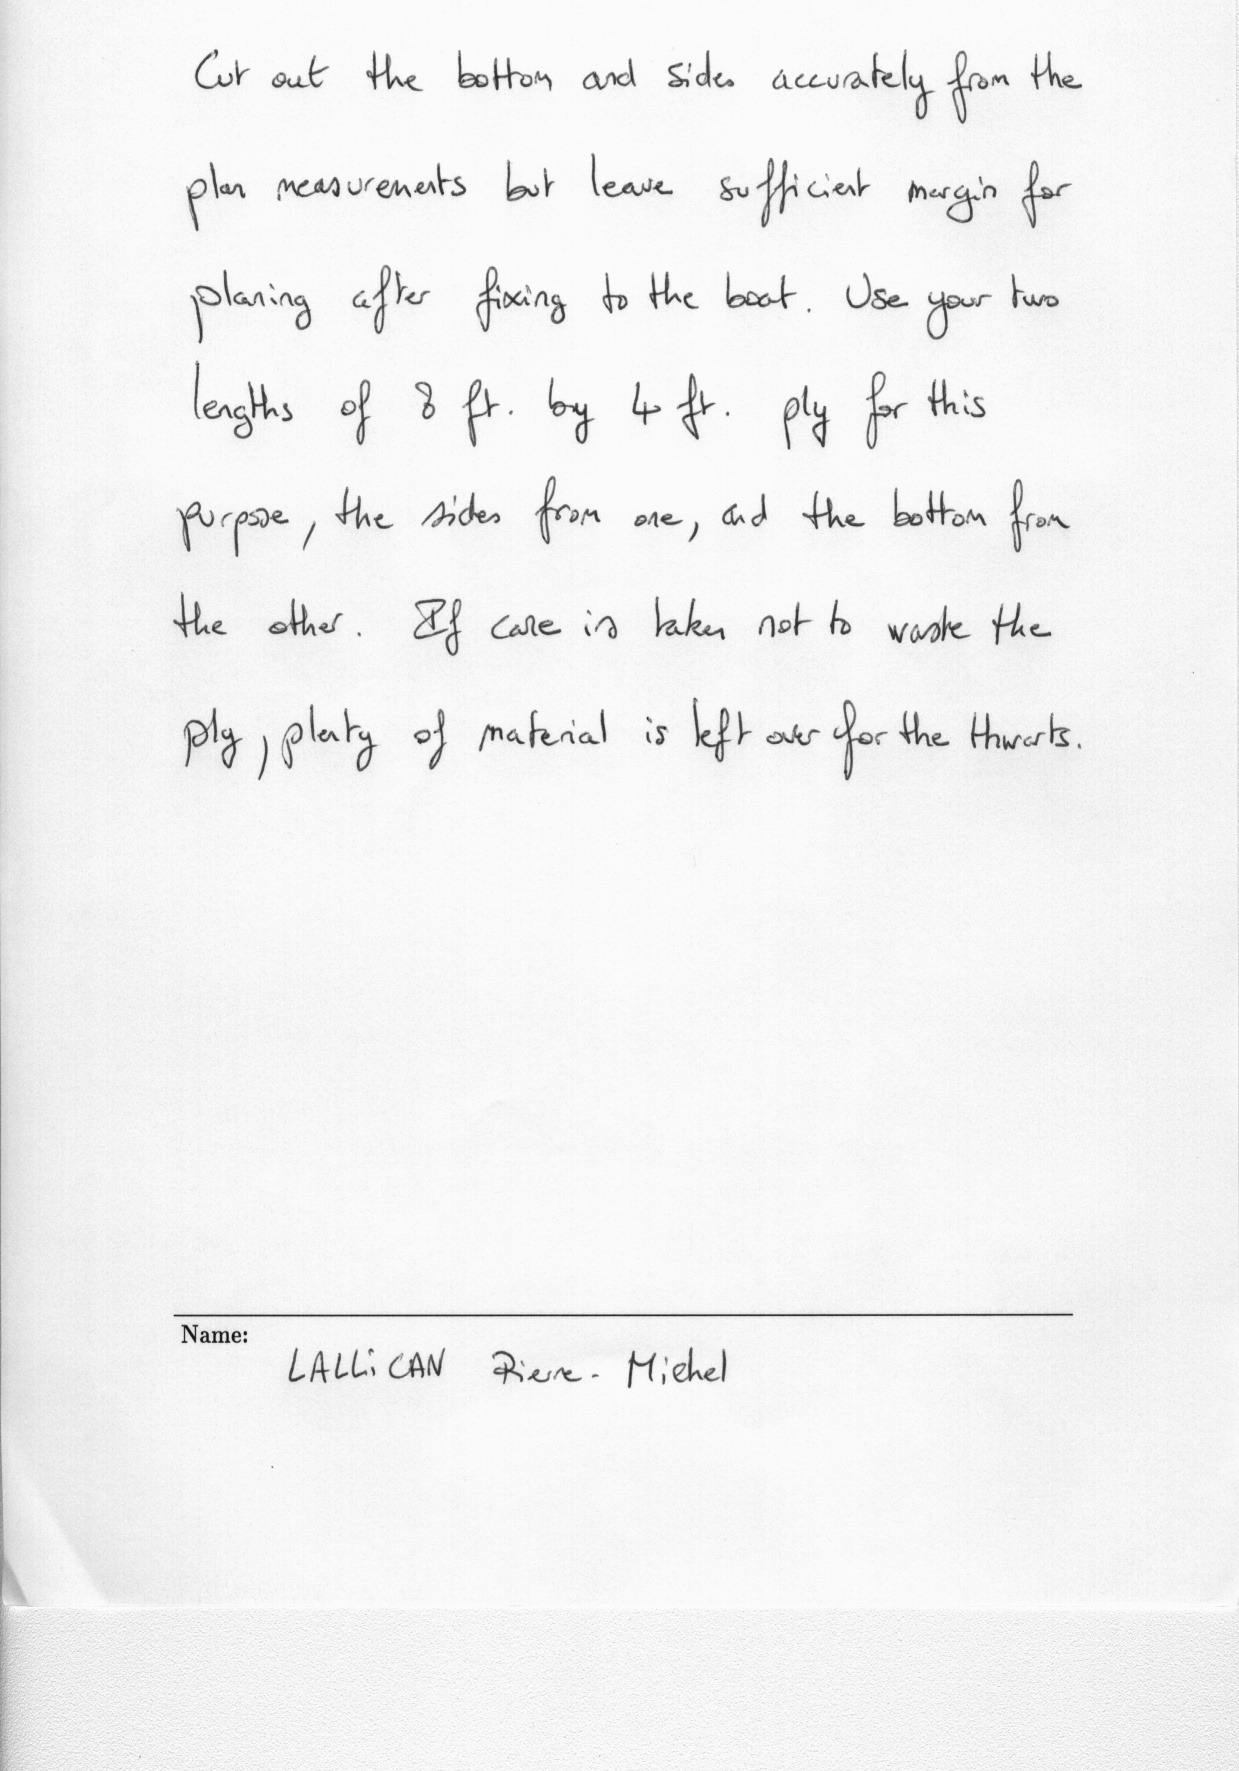 Cut out the bottom and sides accurately from the
plan measurements but leave sufficient margin for
planing after fixing to the boat. Use your two
lengths of 8 ft. by 4 ft. ply for this
purpose, the sides from one, and the bottom from
the other. If care is taken not to waste the
ply, plenty of material is left over for the thwarts.
Name:
LALLiCAN Pierre-Michel